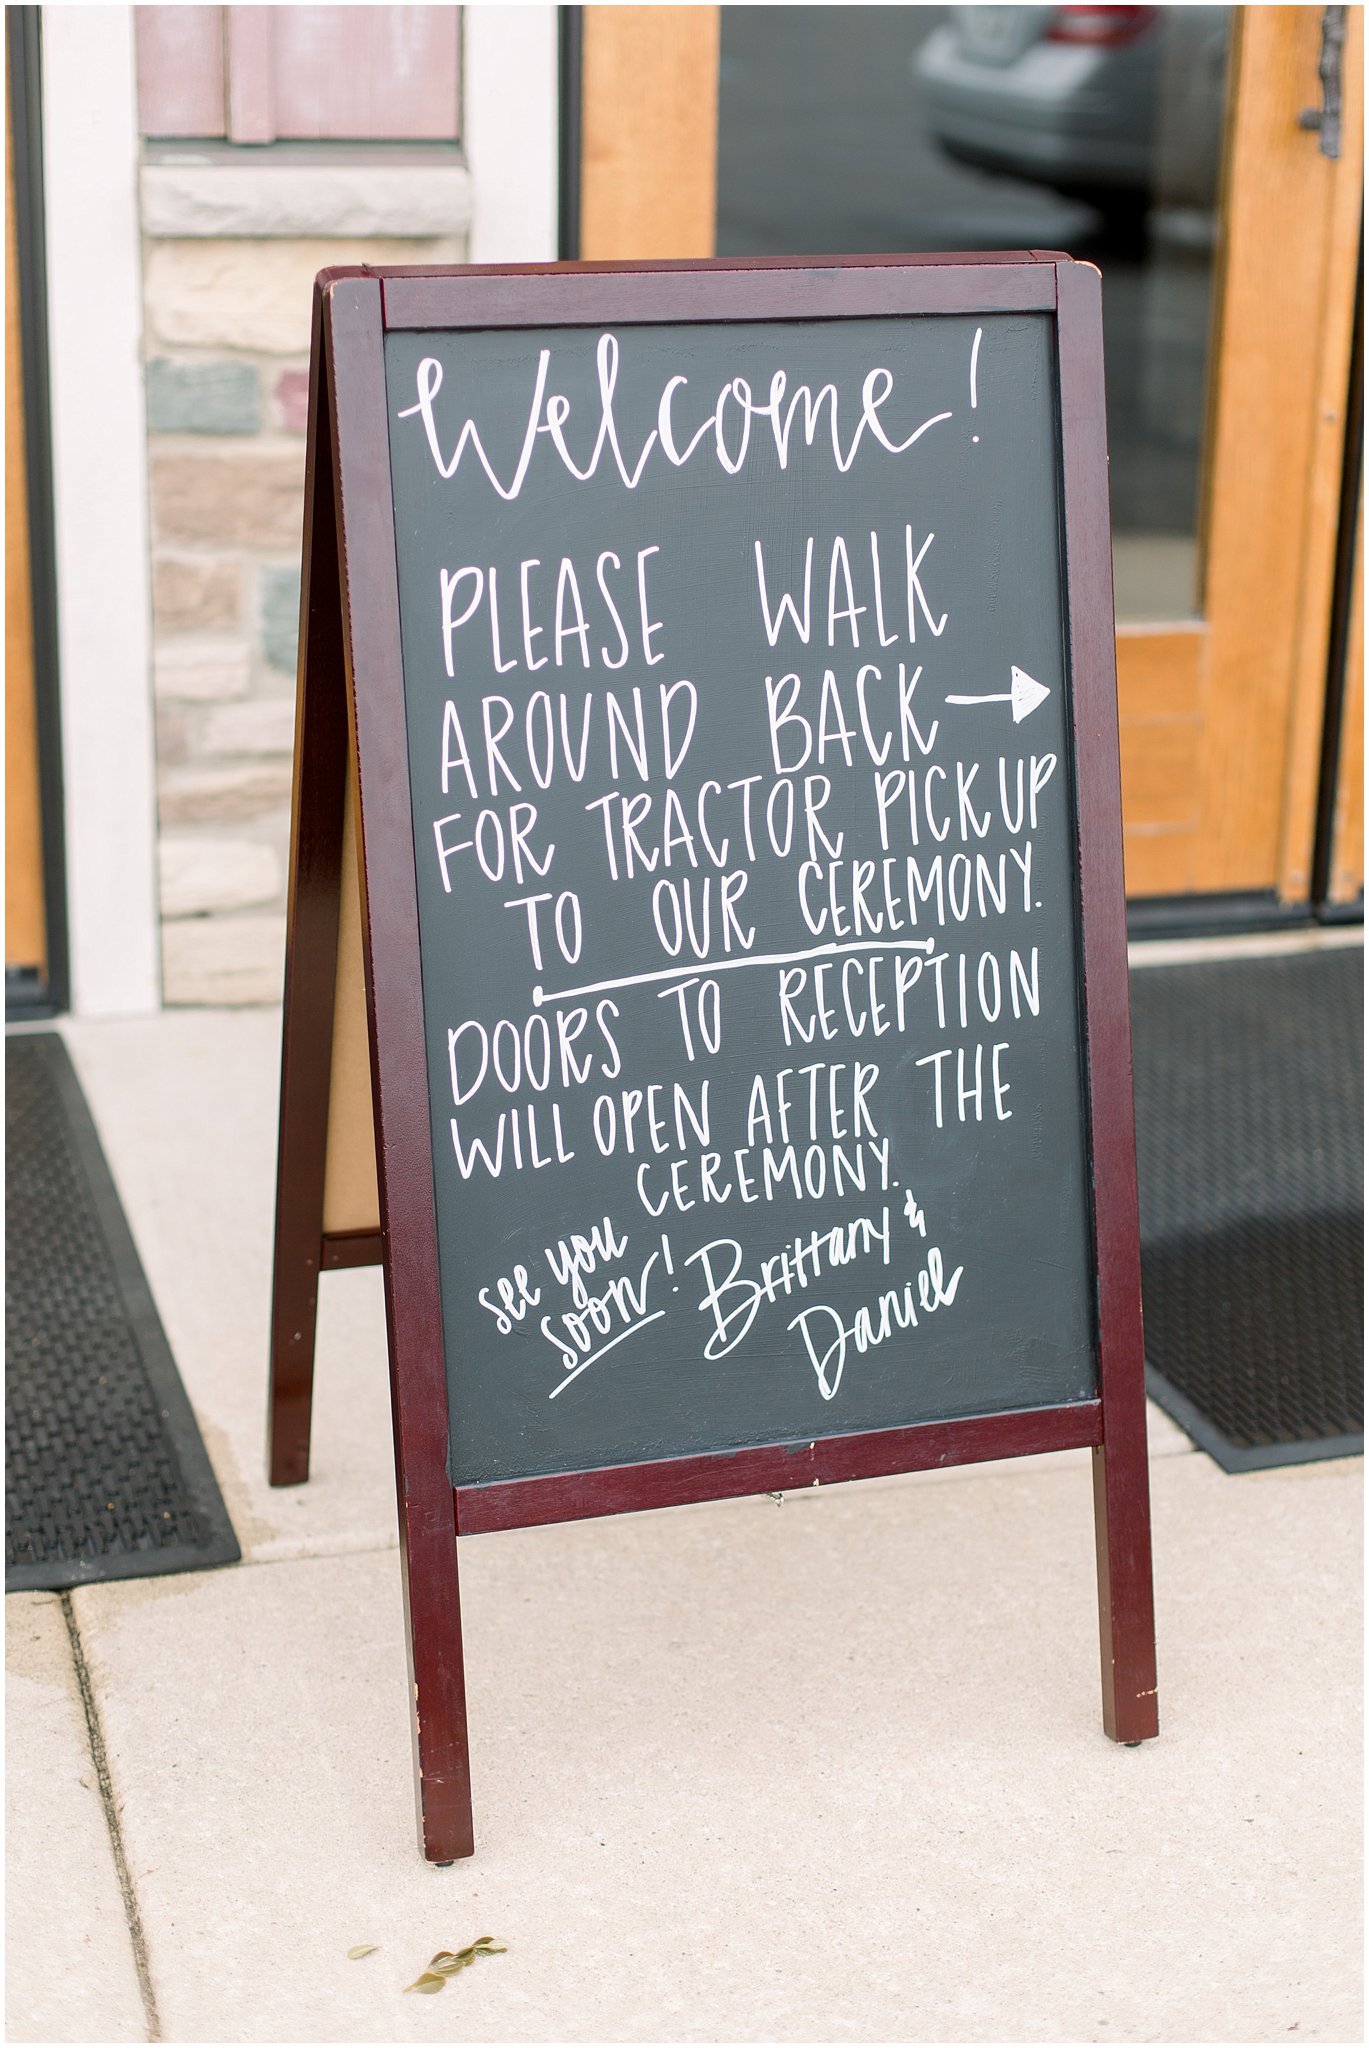 Welcome!
PLEASE WALK
AROUND BACK →
FOR TRACTOR PICK UP
TO OUR CEREMONY.
DOORS TO RECEPTION
WILL OPEN AFTER THE
CEREMONY.
see you
soon!
Brittany &
Daniel